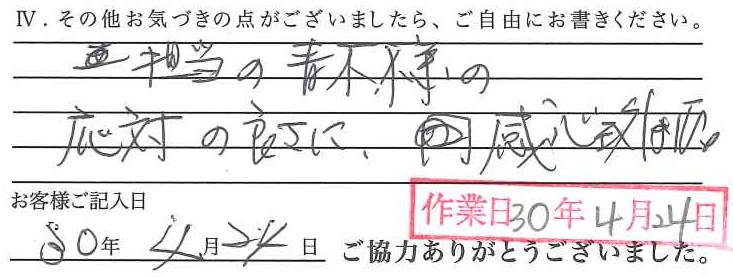 Ⅳ．その他お気づきの点がございましたら、ご自由にお書きください。
担当の青木様の
応対の良さに、感心致しました。
お客様ご記入日
作業日30年4月24日
30年 4月24日 ご協力ありがとうございました。